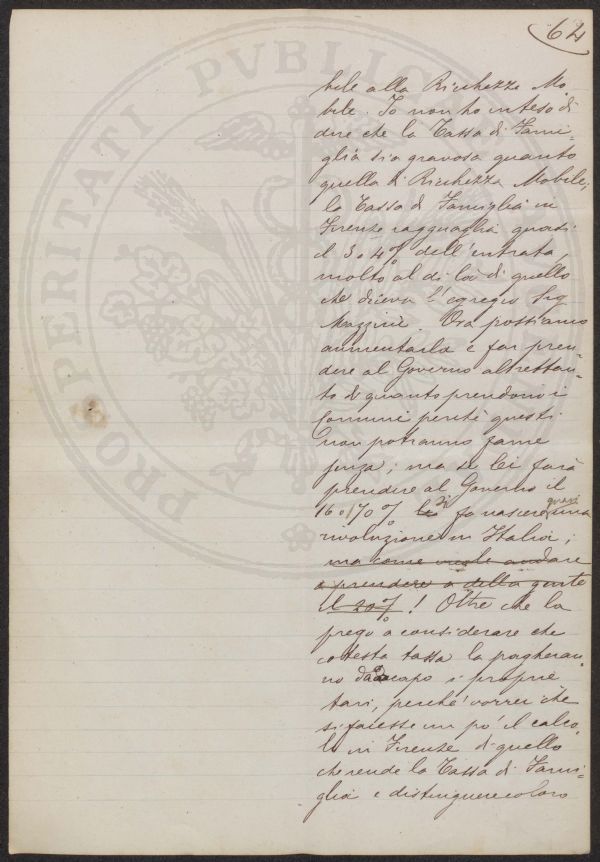 64
bile alla Ricchezza Mo-
bile. Io non ho inteso di
dire che la Tassa di Fami=
glia sia gravosa quanto
quella di Ricchezza Mobile;
la Tassa di Famiglia in
Firenze ragguaglia quasi
il 3 o 4% dell'entrata,
molto al di là di quello
che diceva l'egregio Sig
Mazzini. Ora possiamo
aumentarla e far pren-
dere al Governo altrettan-
to di quanto prendono i
Comuni perché questi
non potranno farne
senza; ma se Lei farà
prendere al Governo il
16 o 170% si fa nascere quasi una
rivoluzione in Italia;
ma come vuole andare
a prendere a della gente
il 20%! Oltre che la
prego a considerare che
cotesta tassa la pagheran-
no da capo i proprie
tari, perché vorrei che
si facesse un po' il calco-
lo in Firenze di quello
che rende la Tassa di Fami=
glia e distinguere coloro
PROSPERITATI PVBLICAE